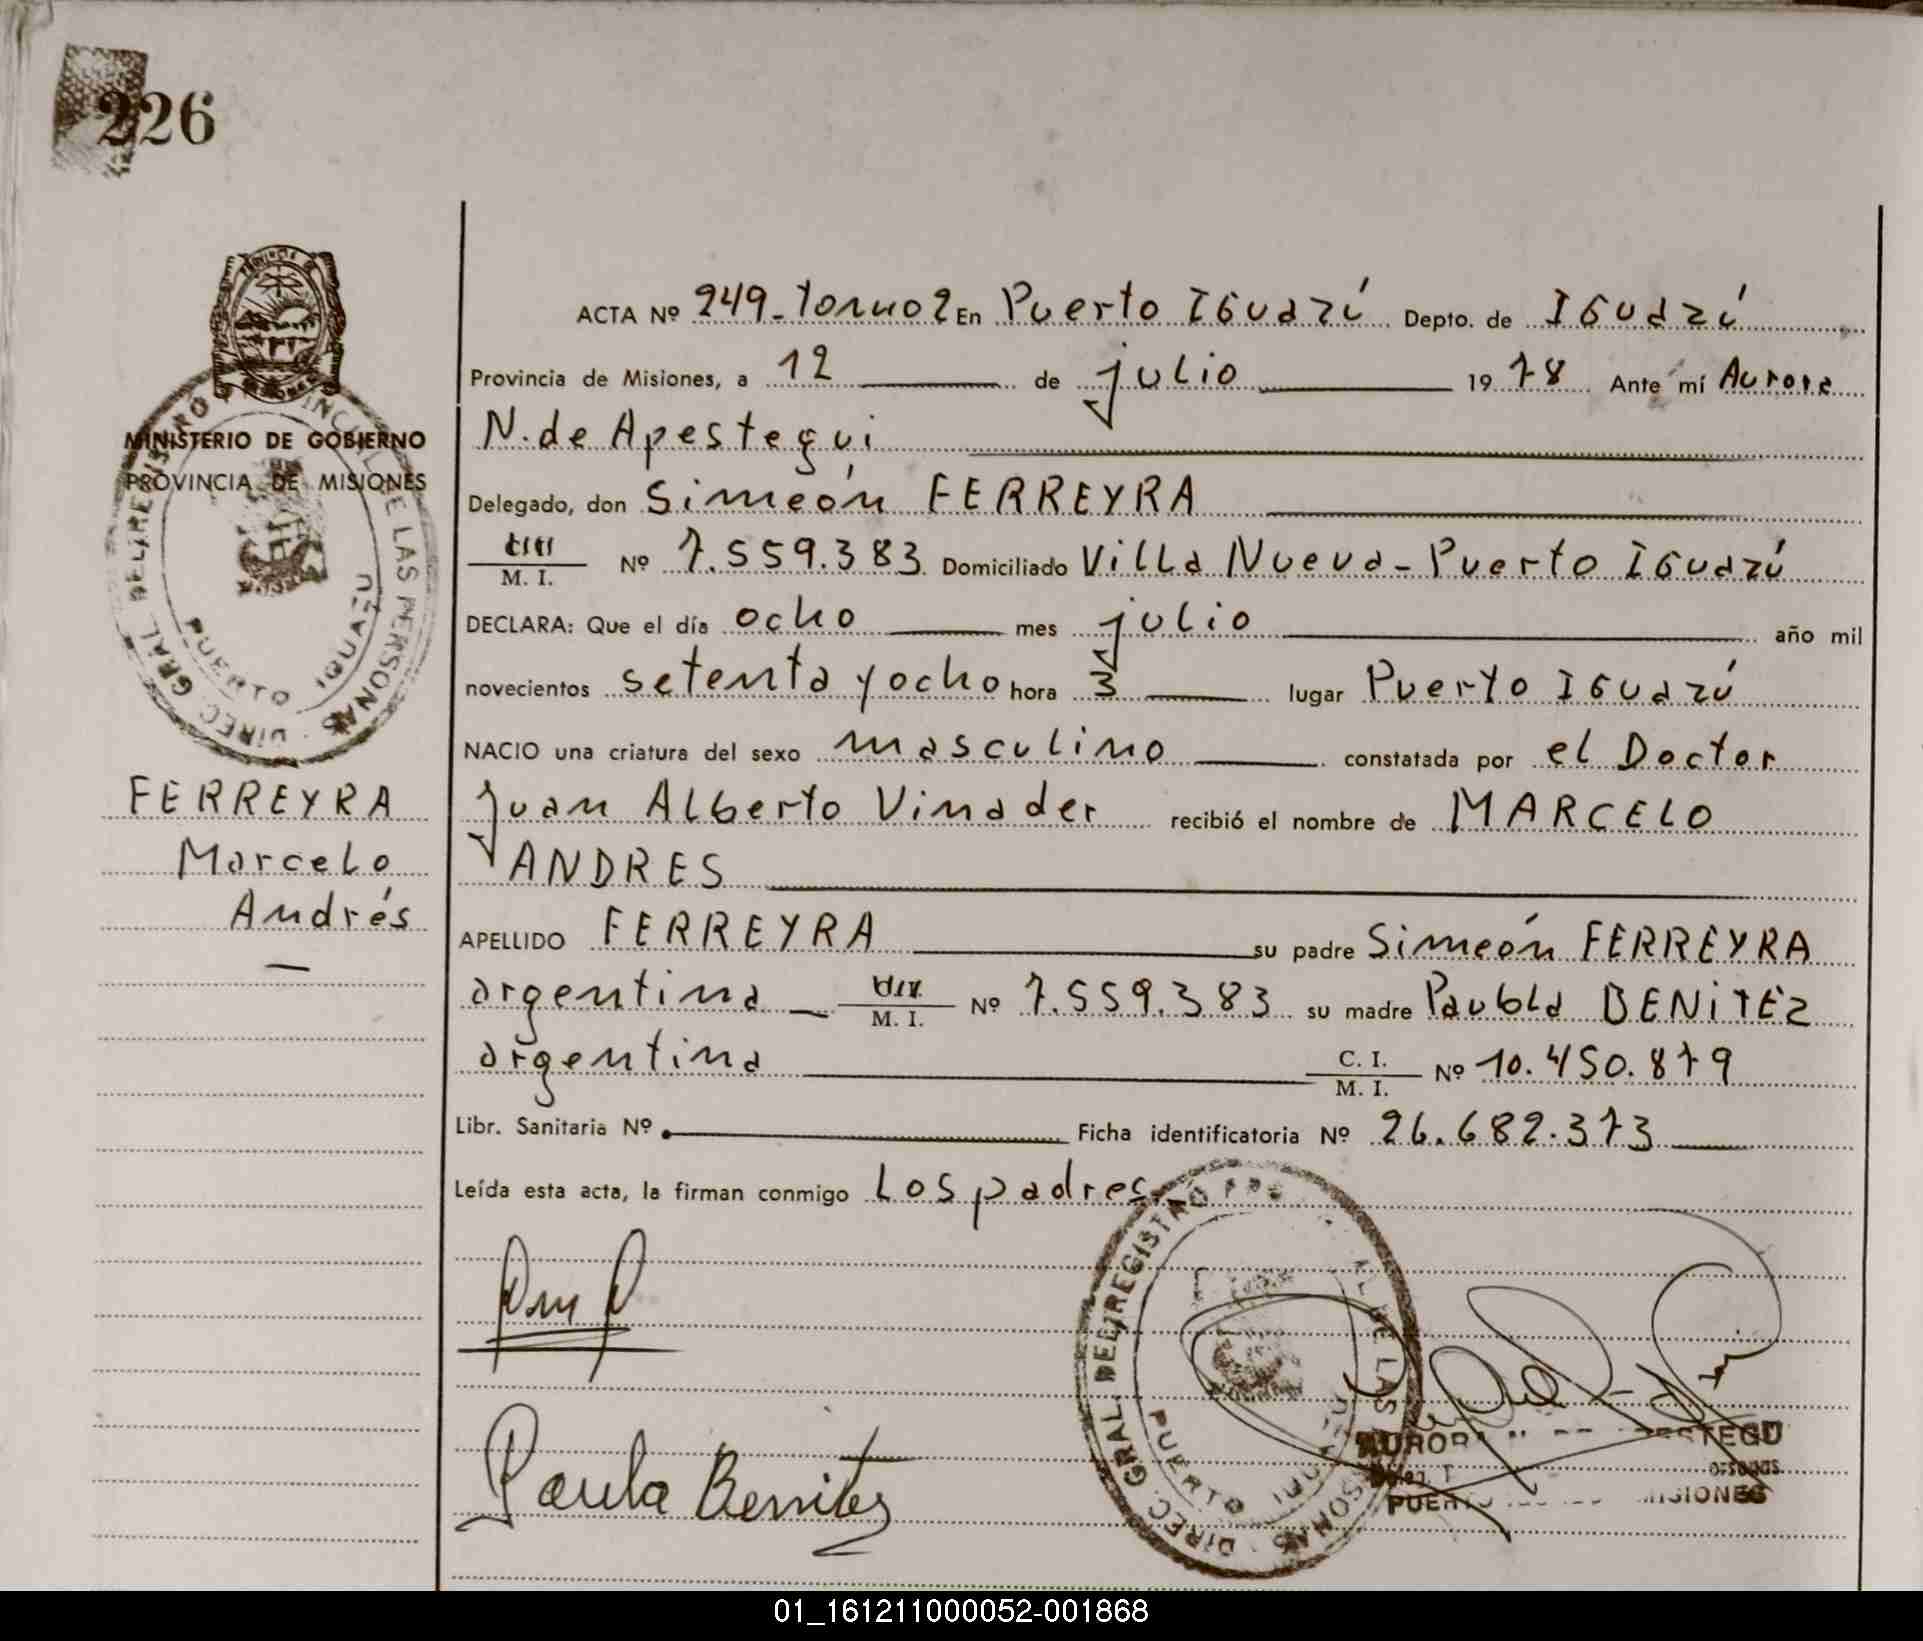 226
ACTA Nº 249-Tomo 2 En Puerto Iguazú Depto. de Iguazú
Provincia de Misiones, a 12 de julio 1978 Ante mí Aurora
N. de Apestegui
Delegado, don Simeón FERREYRA
M. I. Nº 7.559.383 Domiciliado Villa Nueva - Puerto Iguazú
DECLARA: Que el día ocho mes julio año mil
novecientos setenta y ocho hora 3 lugar Puerto Iguazú
NACIO una criatura del sexo masculino constatada por el Doctor
Juan Alberto Vinader recibió el nombre de MARCELO
ANDRES
APELLIDO FERREYRA su padre Simeón FERREYRA
argentina M. I. Nº 7.559.383 su madre Paubla BENITEZ
argentina C. I. M. I. Nº 10.450.879
Libr. Sanitaria Nº Ficha identificatoria Nº 26.682.373
Leída esta acta, la firman conmigo Los padres
Paula Benitez
MINISTERIO DE GOBIERNO
PROVINCIA DE MISIONES
DIREC. GRAL. DEL REGISTRO PROVINCIAL DE LAS PERSONAS
PUERTO IGUAZU
FERREYRA
Marcelo
Andrés
DIREC. GRAL. DEL REGISTRO
DE LAS PERSONAS
PUERTO
AURORA
MISIONES
01_161211000052-001868